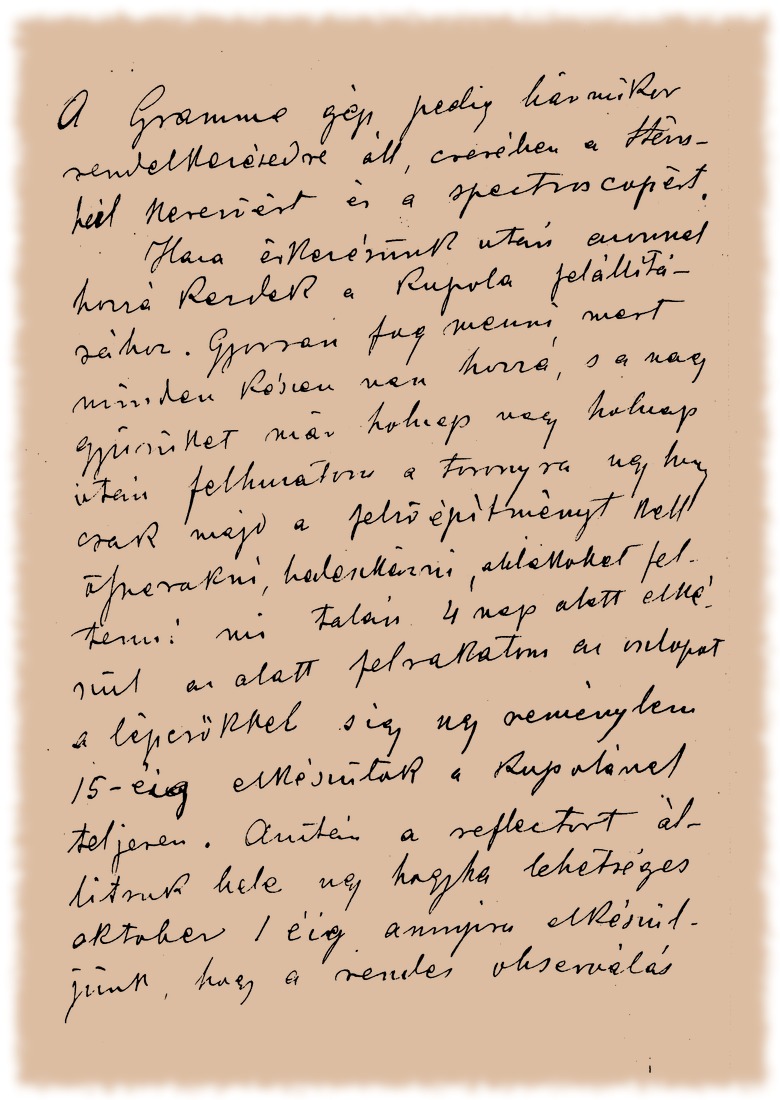 A Gramme gép pedig bármikor
rendelkezésedre áll, cserében a Stein-
heil keresőért és a spectroscopért.
Haza érkezésünk után azonnal
hozzá kezdek a kupola felállítá-
sához. Gyorsan fog menni mert
minden készen van hozzá, s a nagy
gyűrűket már holnap vagy holnap
után felhuzatom a toronyra ugy hogy
csak majd a felső építményt kell
össerakni, bedeszkázni, ablakokat fel-
tenni! mi talán 4 nap alatt elké-
szül az alatt felrakatom az oszlopot
a lépcsőkkel s így ugy reménylem
15-éig elkészülök a kupolával
teljesen. Azután a reflectort ál-
litsuk bele ugy hogyha lehetséges
oktober 1 éig annyira elkészül-
jünk, hogy a rendes observálás